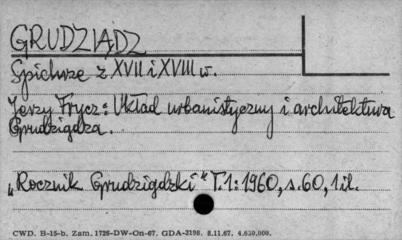 GRUDZIĄDZ
Spichrze z XVII i XVIII w.
Jerzy Frycz: Układ urbanistyczny i architektura
Grudziądza.
"Rocznik Grudziądzki" T.1: 1960, s. 60, 1 il.
CWD. B-15-b. Zam. 1726-DW-On-67. GDA-2198. 8.11.67. 4.650.000.